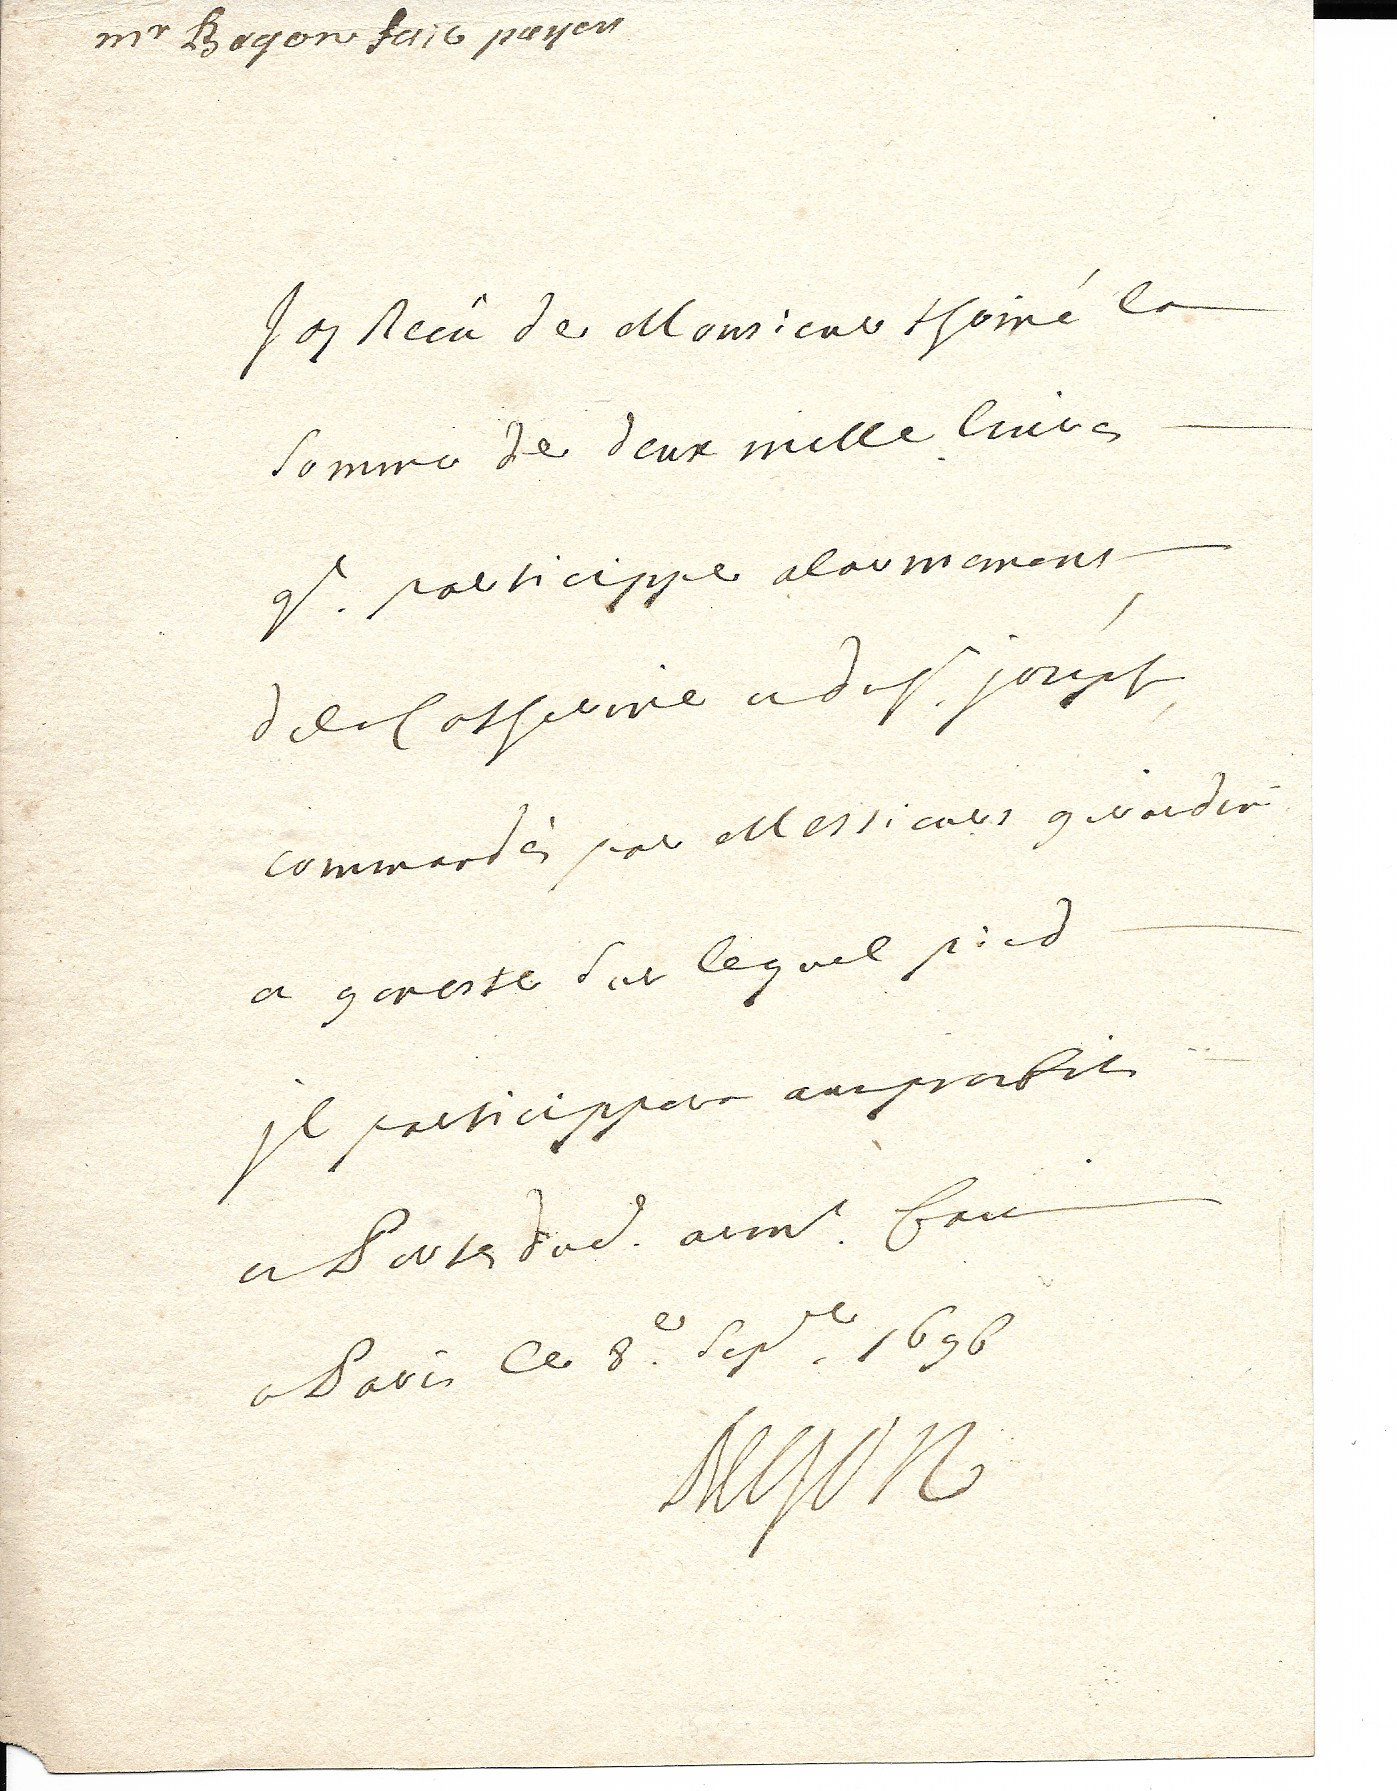 mr Begon faic payer
Jay Receü de Monsieur thoiné la
somme de deux mille livres
ql. particippe alarmemens
dela Catherine et du st. joséph,
commandés par Messieurs girardin
et geneste sur lequel pied
jl particippera aux proufits
et Pertes dud. armt. fait
a Paris le 8e. Sepbre. 1696
BEGON